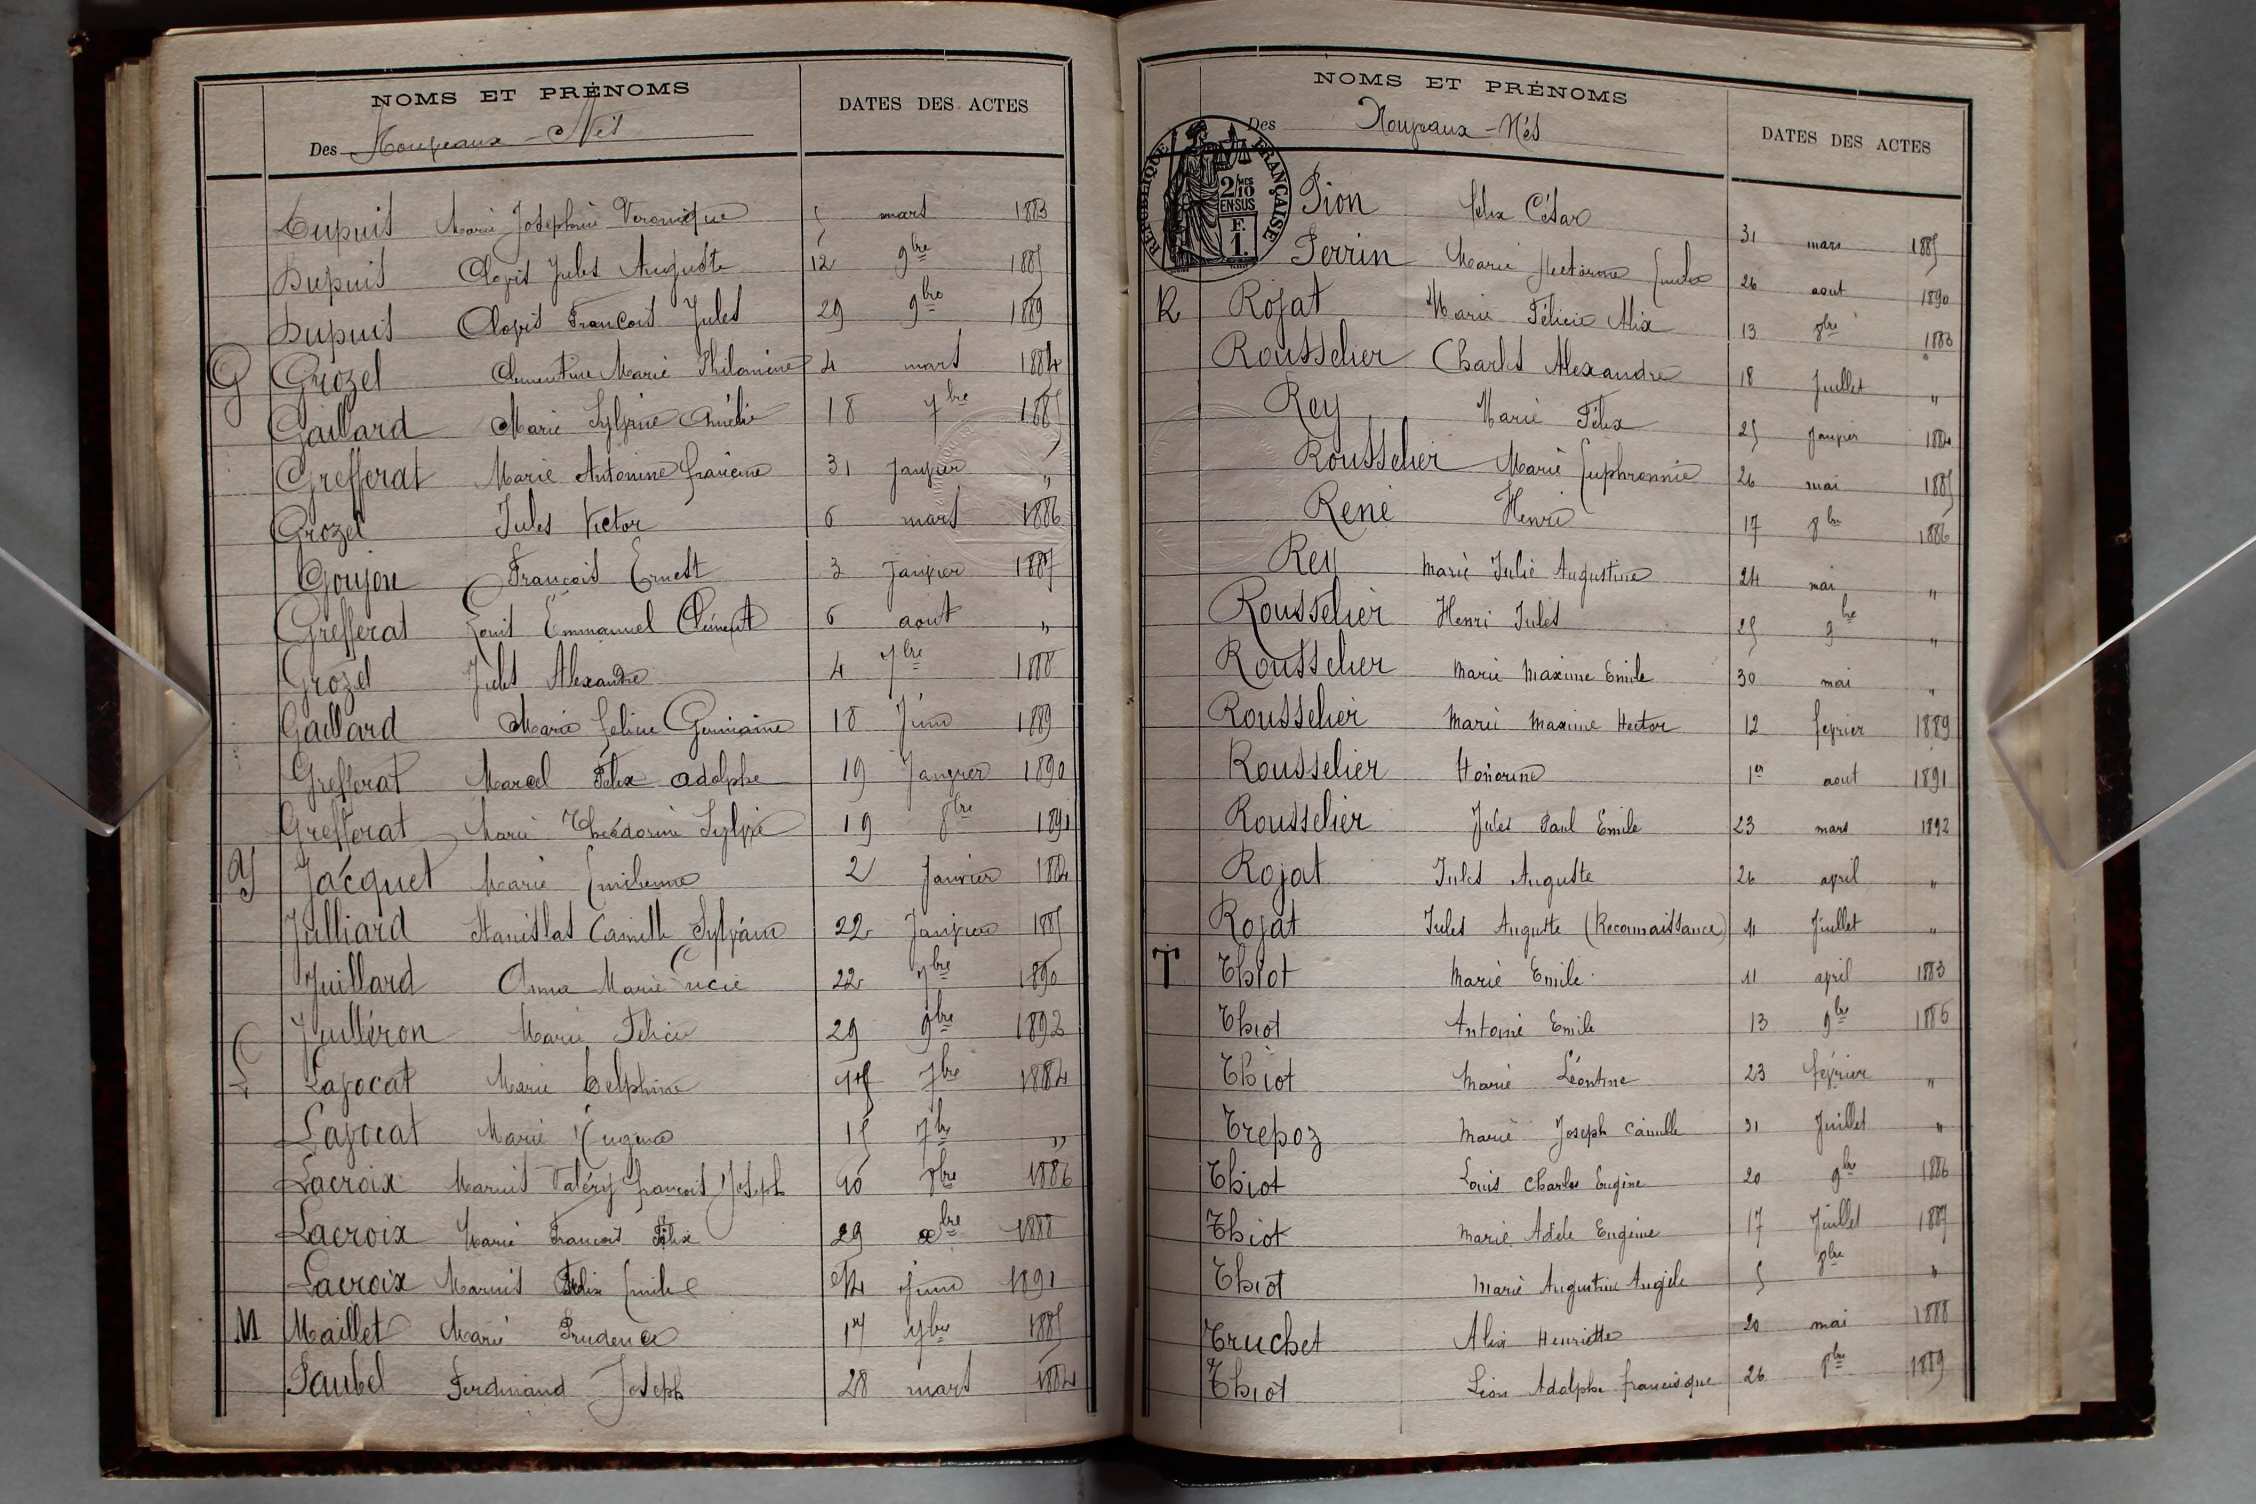 NOMS ET PRÉNOMS DATES DES ACTES
Des Nouveaux-Nés
Dupuis Marie Josephine Veronique 5 mars 1883
Dupuis Clovis Jules Auguste 12 9bre 1885
Dupuis Clovis François Jules 29 9bre 1889
G Grozel Clementine Marie Philomène 4 mars 1884
Gaillard Marie Sylvine Amélie 18 7bre 1885
Grefferat Marie Antonine Francine 31 Janvier "
Grozel Jules Victor 6 mars 1886
Goujon François Ernest 3 Janvier 1887
Grefferat Louis Emmanuel Clément 6 aout "
Grozel Jules Alexandre 4 7bre 1888
Gaillard Marie Celine Germaine 18 Juin 1889
Grefferat Marcel Felix adolphe 19 Janvier 1890
Grefferat Marie Théodorine Sylvie 19 8bre 1891
J Jacquet Marie Emilienne 2 Janvier 1884
Julliard Stanislas Camille Sylvain 22 Janvier 1885
Juillard Anna Marie Lucie 22 7bre 1890
Juilléron Marie Felicie 29 9bre 1892
L Lavocat Marie Delphine 15 7bre 1884
Lavocat Marie Eugena 15 7bre "
Lacroix Marius Valéry françois Joseph 10 8bre 1886
Lacroix Marie François Félix 29 xbre 1888
Lacroix Marius Felix Emile 14 juin 1891
M Maillet Marie Prudence 17 7bre 1885
Paubel Ferdinand Joseph 28 mars 1884
NOMS ET PRÉNOMS DATES DES ACTES
Des Nouveaux-Nés
RÉPUBLIQUE FRANÇAISE
2/10 MES
EN SUS
F.
1.
Pion felix César 31 mars 1885
Perrin Marie Emilie 26 aout 1890
R Rojat Marie Félicie Alix 13 8bre 1883
Rousselier Charles Alexandre 18 Juillet "
Rey Marie Félix 25 Janvier 1884
Rousselier Marie Euphronnie 26 mai 1885
René Henri 17 8bre 1886
Rey Marie Julie Augustine 24 mai "
Rousselier Henri Jules 25 9bre "
Rousselier Marie Maxime Emile 30 mai "
Rousselier Marie Maxime Hector 12 fevrier 1889
Rousselier Honorine 1er aout 1891
Rousselier Jules Paul Emile 23 mars 1892
Rojat Jules Auguste 26 avril "
Rojat Jules Auguste (Reconnaissance) 11 Juillet "
T Thiot Marie Emile 11 avril 1883
Thiot Antoine Emile 13 9bre 1885
Thiot Marie Léontine 23 février "
Trepoz Marie Joseph Camille 31 Juillet "
Thiot Louis Charles Eugène 20 9bre 1886
Thiot Marie Adèle Eugénie 17 Juillet 1887
Thiot Marie Augustine Angèle 5 8bre "
Truchet Alix Henriette 20 mai 1888
Thiot Léon Adolphe francisque 26 8bre 1889